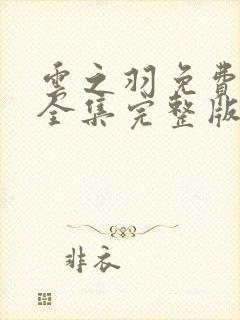 雲之羽免費
全集完整版
非衣